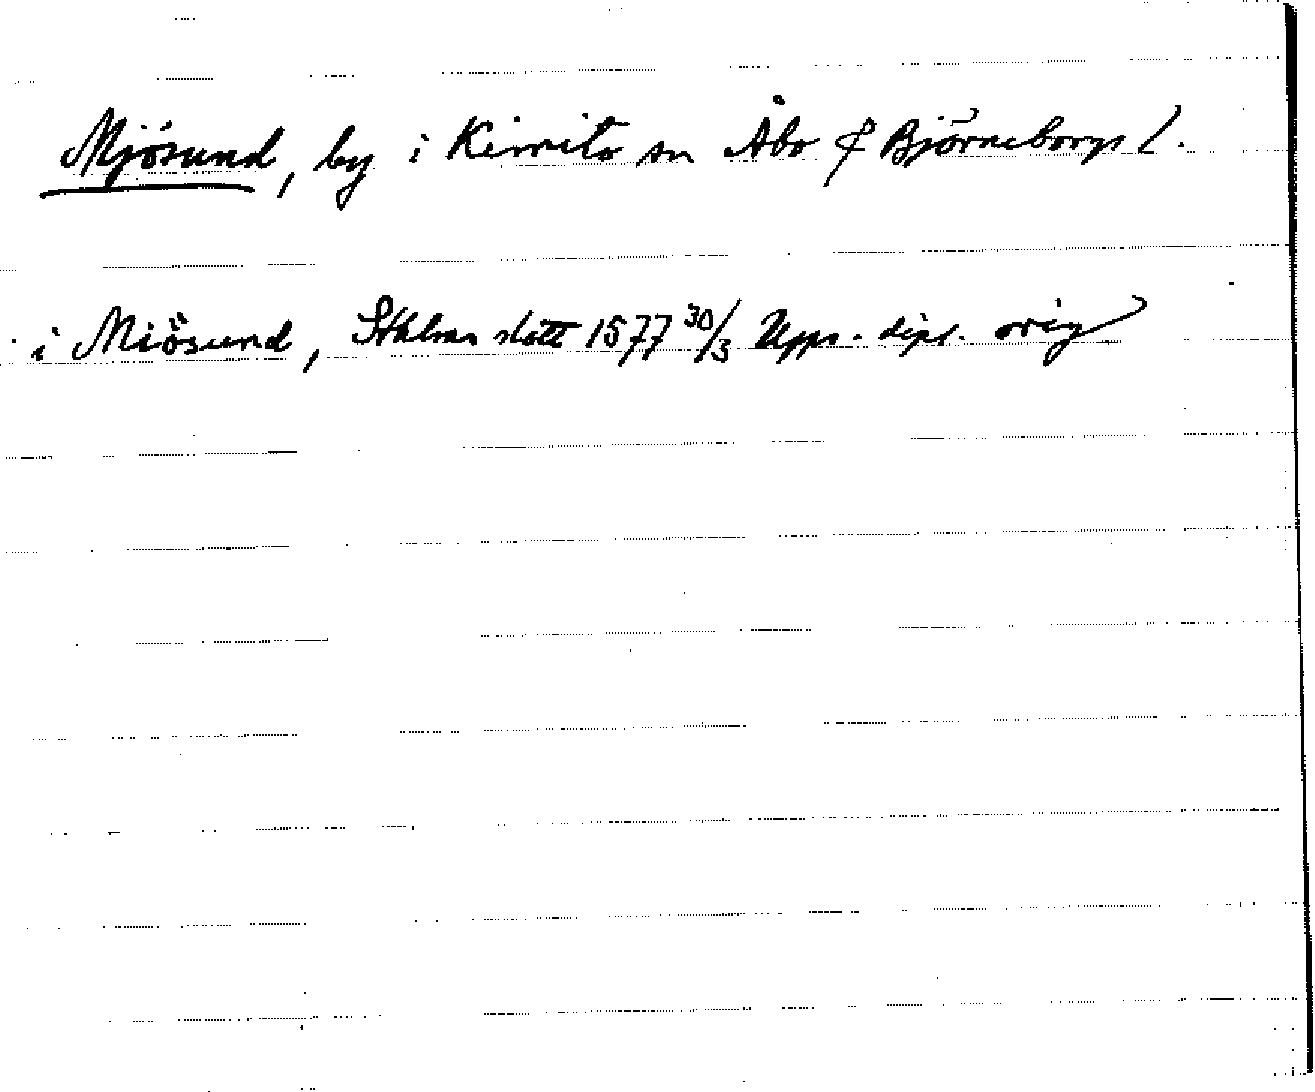 Mjösund, by i Kimito sn Åbo & Björneborgs l.
i Miösund, Sthlms slott 1577 30/3 Upps. dipl. orig